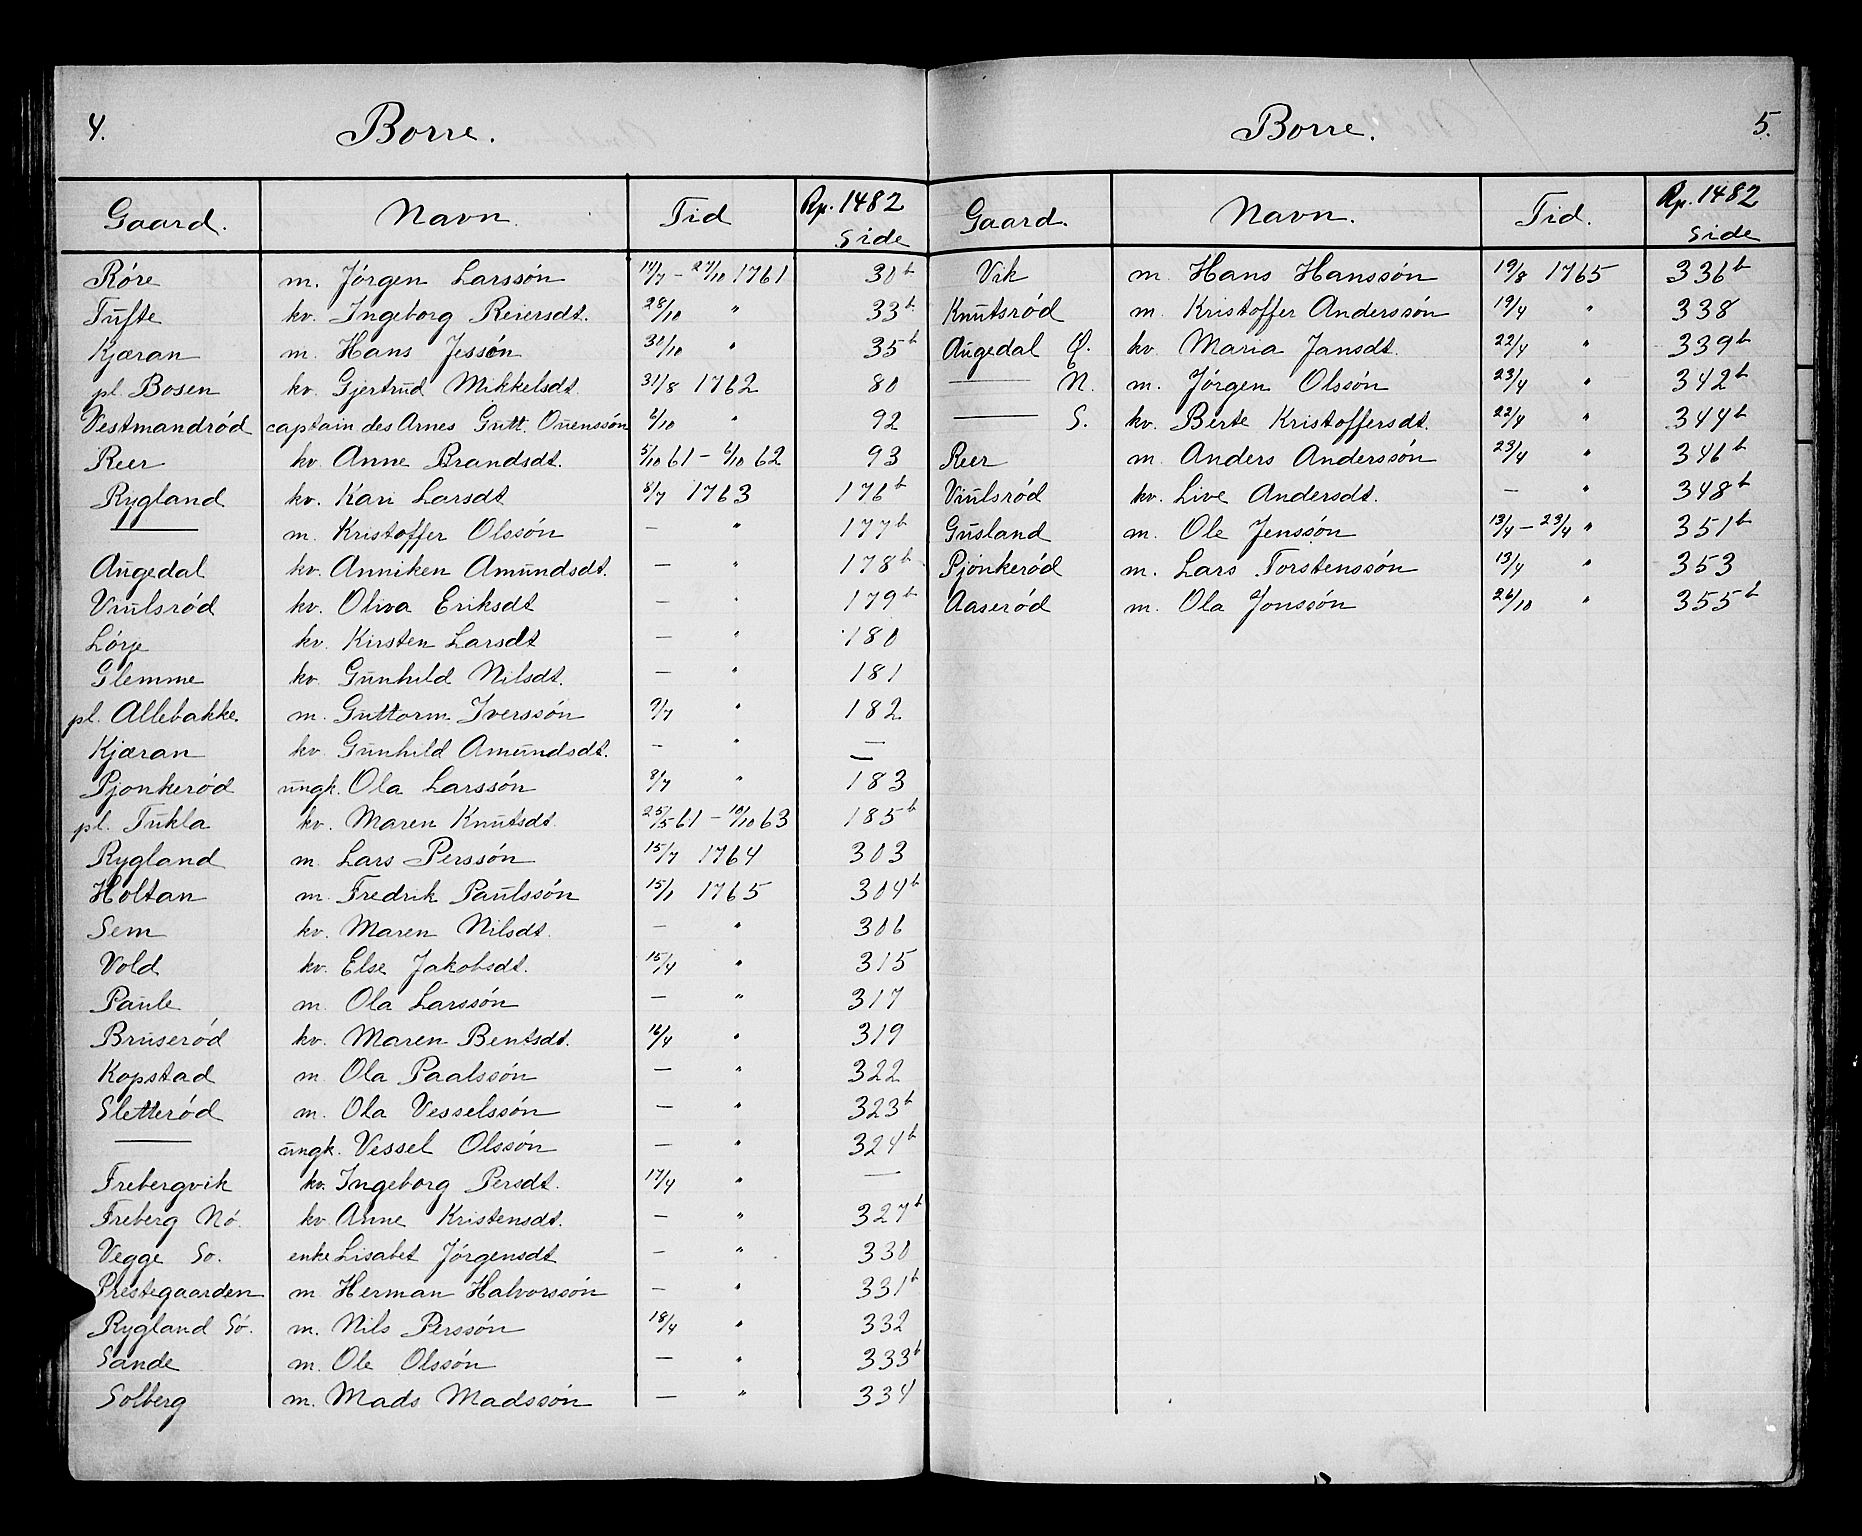 4.
Borre.
Gaard. Navn. Tid Rp. 1482 Side
Röre m. Jörgen Larssön 14/7 - 27/10 1761 30b
Tufte kv. Ingeborg Reiersdt. 28/10 " 33b
Kjæran m. Hans Jessön 30/10 " 35b
pl. Bosen kv. Gjertrud Mikkelsdt. 31/8 1762 80
Vestmandröd captain des Arnes Gutt. Ouenssön 6/10 " 92
Reer kv. Anne Brandsdt. 5/10 61 - 6/10 62 93
Rygland kv. Kari Larsdt 8/7 1763 176b
— m. Kristoffer Olssön — " 177b
Augedal kv. Anniken Amundsdt. — " 178b
Viulsröd kv. Oliva Eriksdt — " 179b
Lörje kv. Kirsten Larsdt — " 180
Glemme kv. Gunhild Nilsdt. — " 181
pl. Allebakke m. Guttorm Iverssön 9/7 " 182
Kjæran kv. Gunhild Amundsdt. — " —
Pjonkeröd ungk. Ola Larssön 8/7 " 183
pl. Tukla kv. Maren Knutsdt. 25/5 61 - 10/10 63 185b
Rygland m. Lars Perssön 15/7 1764 303
Holtan m. Fredrik Paulssön 15/1 1765 304b
Sem kv. Maren Nilsdt. — " 306
Vold kv. Else Jakobsdt. 15/4 " 315
Paule m. Ola Larssön — " 317
Bruseröd kv. Maren Bentsdt. 16/4 " 319
Kopstad m. Ola Paalssön — " 322
Sletteröd m. Ola Vesselssön — " 323b
— ungk. Vessel Olssön — " 324b
Frebergvik kv. Ingeborg Persdt. 17/4 " —
Freberg Nö. kv. Anne Kristensdt. — " 327b
Vegge So. enke Lisabet Jörgensdt — " 330
Prestegaarden m. Herman Halvorssön — " 331b
Rygland Sö. m. Nils Perssön 18/4 " 332
Sande m. Ole Olssön — " 333b
Solberg m. Mads Madssön — " 334
5.
Borre.
Gaard. Navn. Tid. Rp. 1482 Side
Vik m. Hans Hanssön 19/8 1765 336b
Knutsröd m. Kristoffer Anderssön 19/4 " 338
Augedal Ø. kv. Maria Jansdt. 22/4 " 339b
— N. m. Jörgen Olssön 23/4 " 342b
— S. kv. Berte Kristoffersdt. 22/4 " 344b
Reer m. Anders Anderssön 23/4 " 346b
Viulsröd kv. Live Andersdt. — " 348b
Gusland m. Ole Jenssön 13/4 - 23/4 " 351b
Pjonkeröd m. Lars Torstenssön 13/4 " 353
Aaseröd m. Ola Jonssön 26/10 " 355b